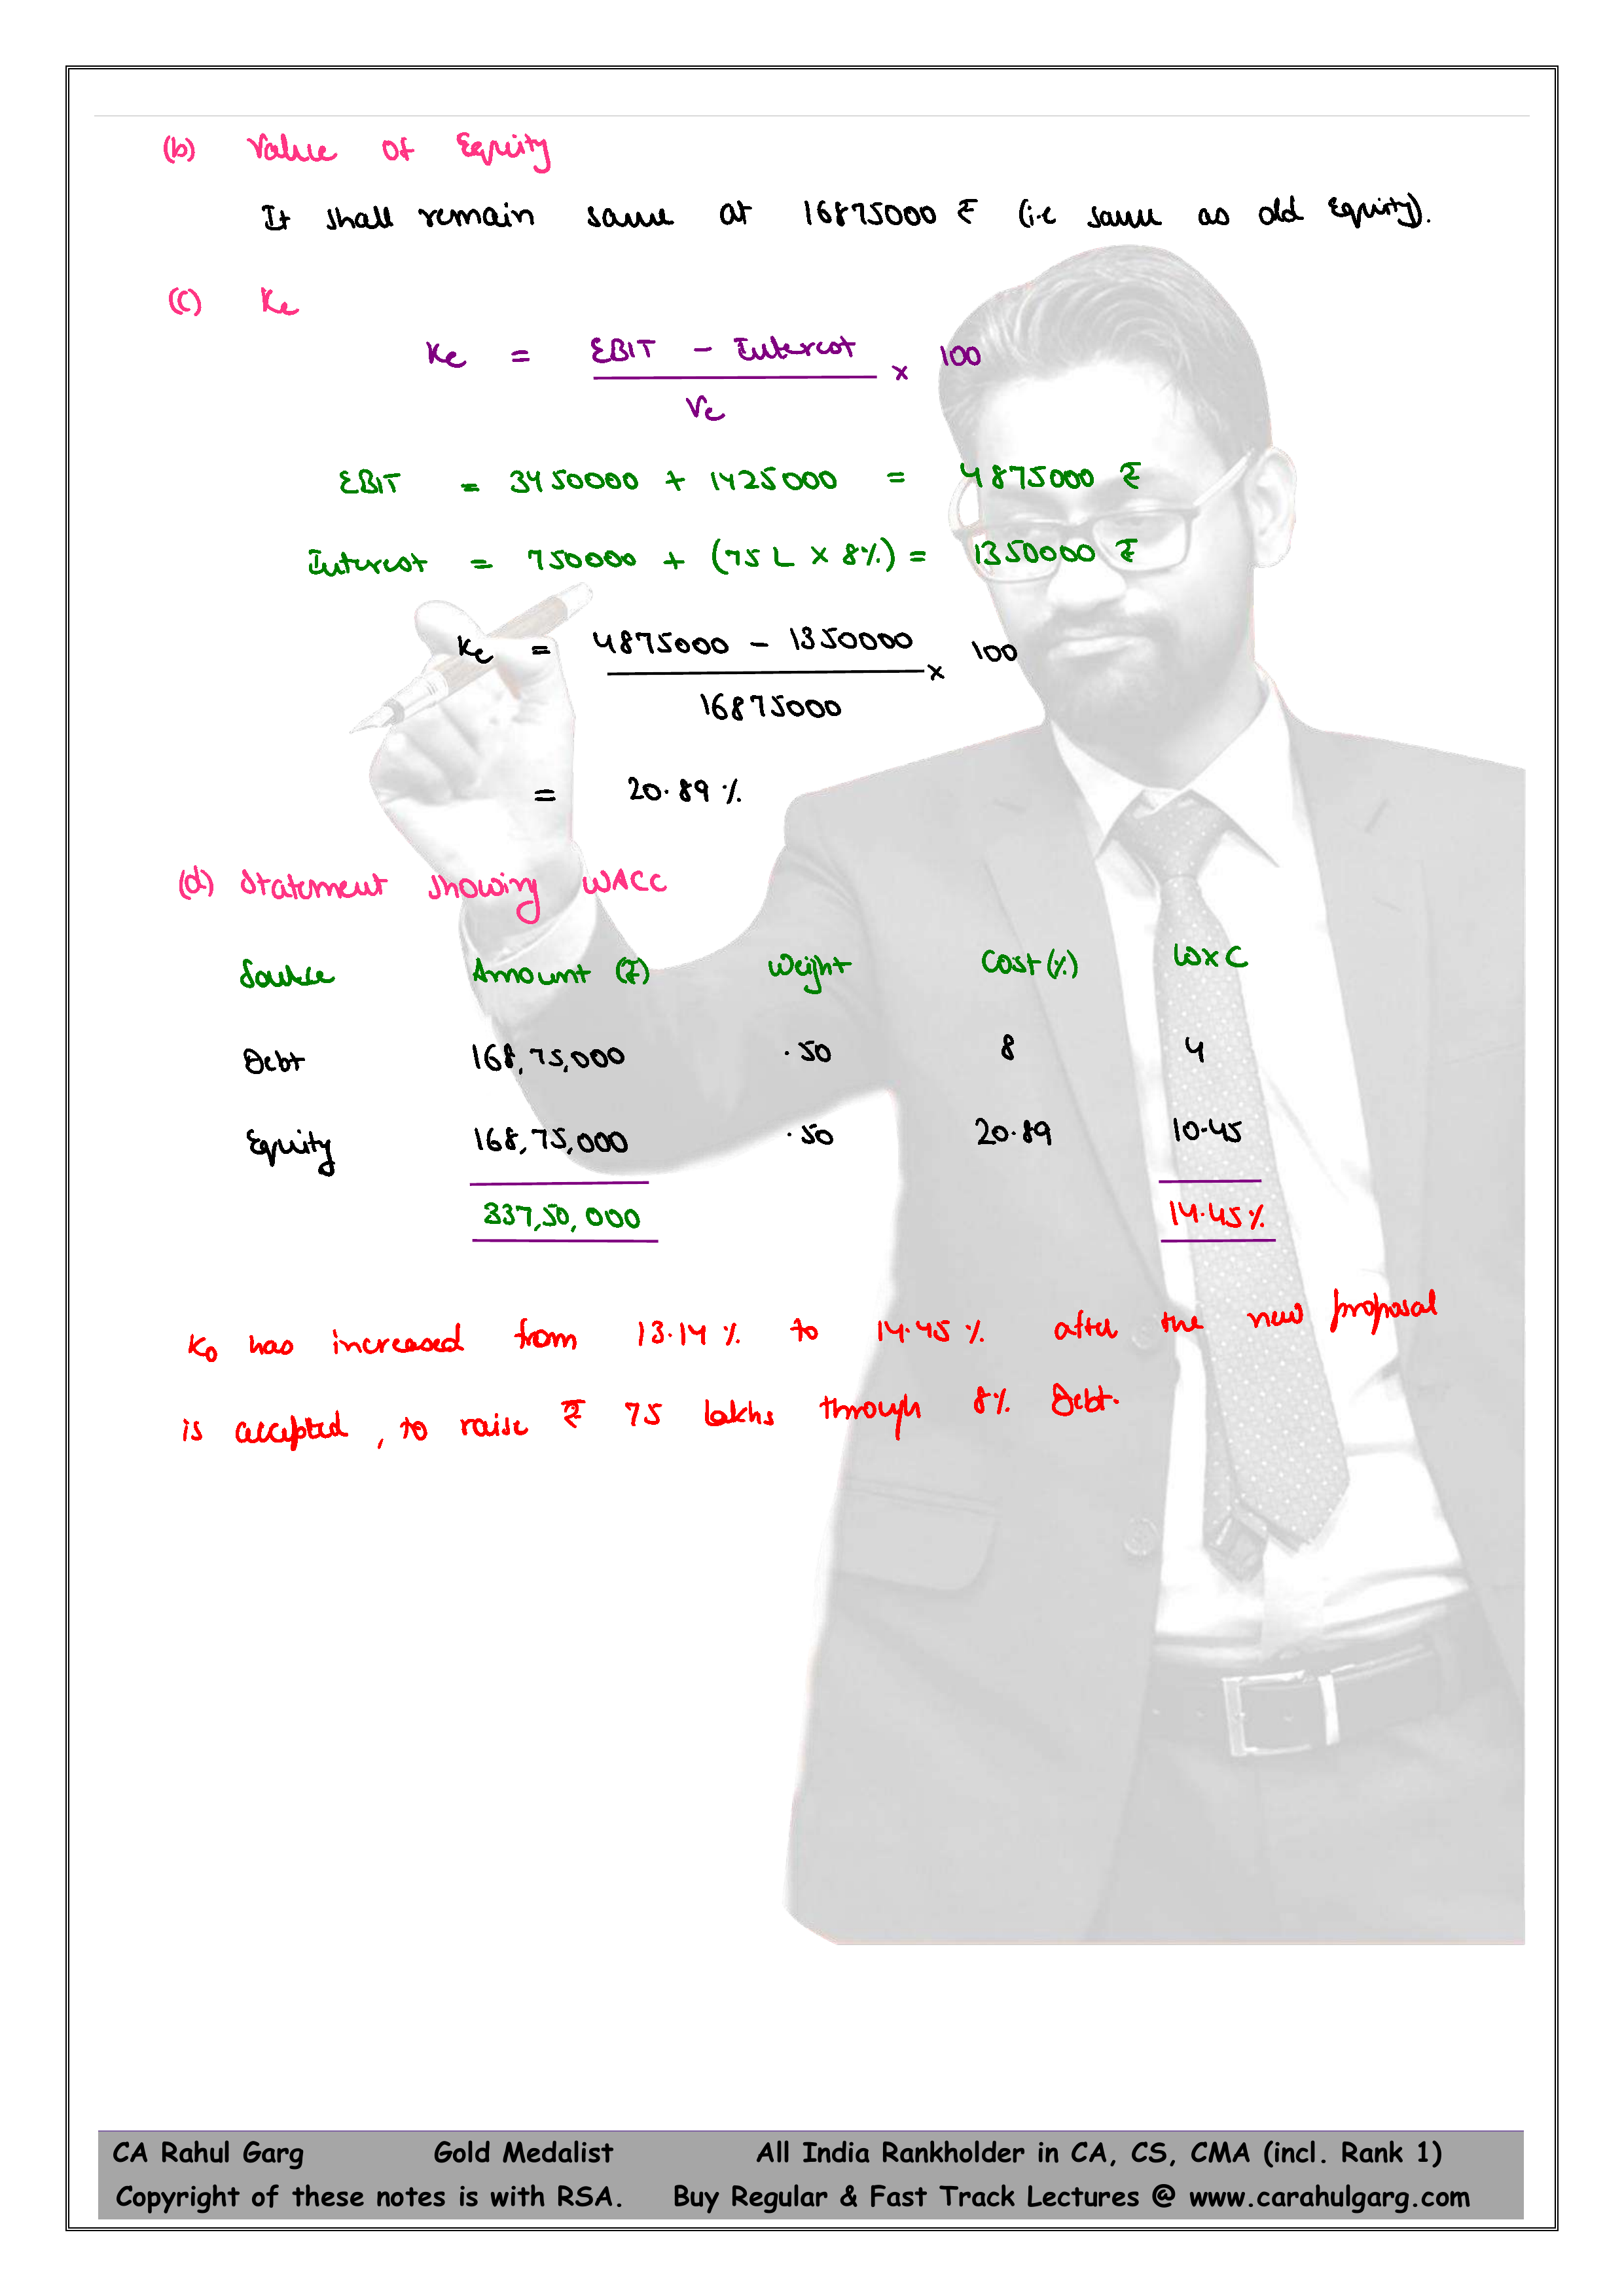 (b) Value of Equity
It shall remain same at 16875000 ₹ (i.e same as old Equity).
(c) Ke
Ke = EBIT - Interest × 100
Ve
EBIT = 3450000 + 1425000 = 4875000 ₹
Interest = 750000 + (75 L × 8%) = 1350000 ₹
Ke = 4875000 - 1350000 × 100
16875000
= 20.89 %
(d) Statement showing WACC
Source Amount (₹) Weight Cost (%) W×C
Debt 168,75,000 .50 8 4
Equity 168,75,000 .50 20.89 10.45
337,50,000 14.45%
Ko has increased from 13.14 % to 14.45 % after the new proposal
is accepted, to raise ₹ 75 lakhs through 8% Debt.
CA Rahul Garg Gold Medalist All India Rankholder in CA, CS, CMA (incl. Rank 1)
Copyright of these notes is with RSA. Buy Regular & Fast Track Lectures @ www.carahulgarg.com